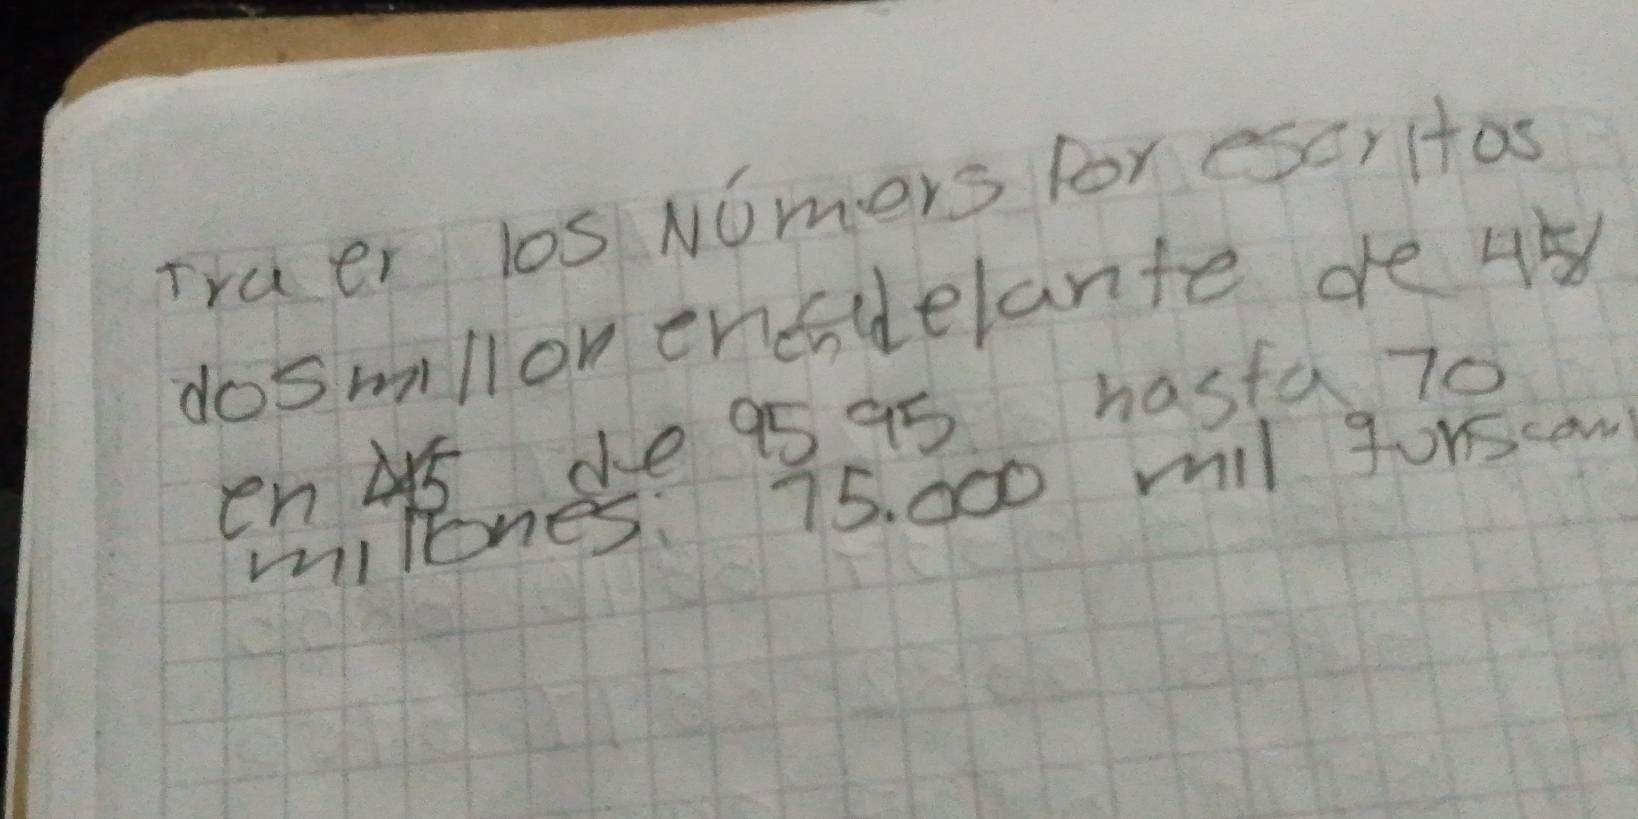 Traer los Númers Por escritos
dos millon en adelante de 45
en 45 de 95 95 hasta 70
millones: 75.000 mil